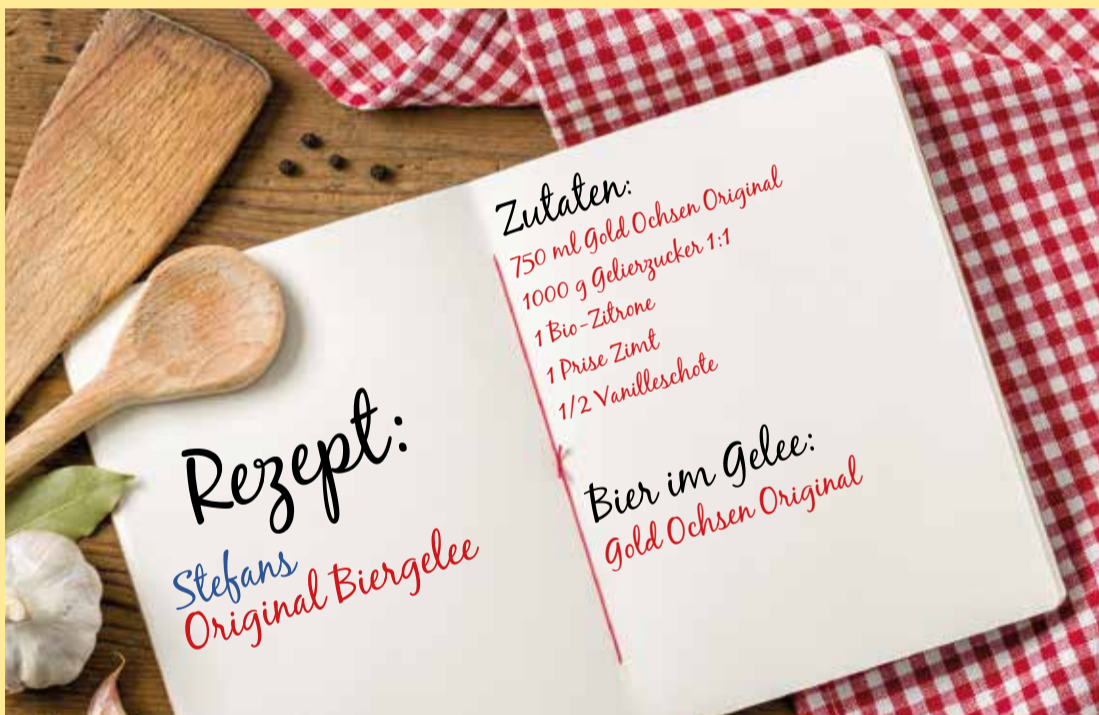 Rezept:
Stefans
Original Biergelee
Zutaten:
750 ml Gold Ochsen Original
1000 g Gelierzucker 1:1
1 Bio-Zitrone
1 Prise Zimt
1/2 Vanilleschote
Bier im Gelee:
Gold Ochsen Original